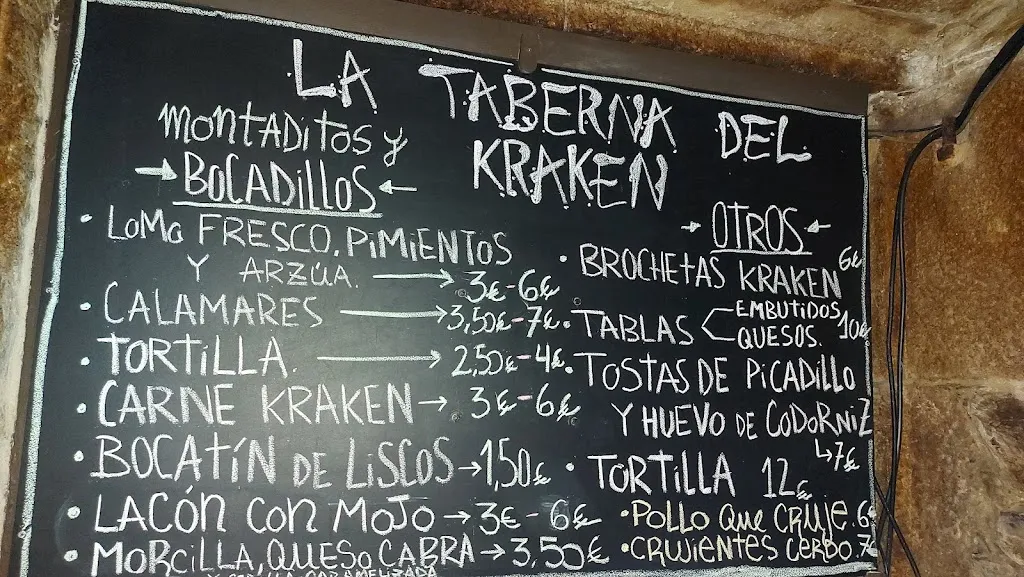 LA TABERNA DEL
KRAKEN
MONTADITOS Y
→BOCADILLOS←
• LOMO FRESCO, PIMIENTOS
Y ARZÚA. → 3€-6€
• CALAMARES → 3,50€-7€
• TORTILLA. → 2,50€-4€
• CARNE KRAKEN → 3€-6€
• BOCATÍN DE LISCOS → 1,50€
• LACÓN CON MOJO → 3€-6€
• MORCILLA, QUESO CABRA → 3,50€
CARAMELIZADA
→ OTROS ←
• BROCHETAS KRAKEN 6€
• TABLAS < EMBUTIDOS
QUESOS. 10€
• TOSTAS DE PICADILLO
Y HUEVO DE CODORNIZ
↳7€
• TORTILLA 12€
• POLLO QUE CRUJE. 6€
• CRUJIENTES CERDO. 7€